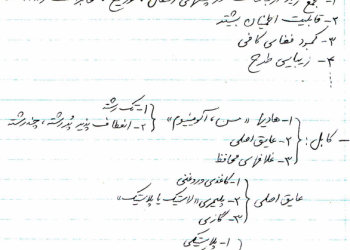 ۲- قابلیت اطمینان بیشتر
۳- کمبود فضای کافی
۴- زیبایی طرح
۱- هادیها «مس، آلومینیوم» { ۱- تک رشته
۲- انعطاف پذیر پُر رشته، چند رشته
- کابل: { ۲- عایق اصلی
۳- غلافهای محافظ
عایق اصلی { ۱- کاغذی و روغنی
۲- پلیمری «لاستیک یا پلاستیک»
۳- گازی
۱- پلاستیکی